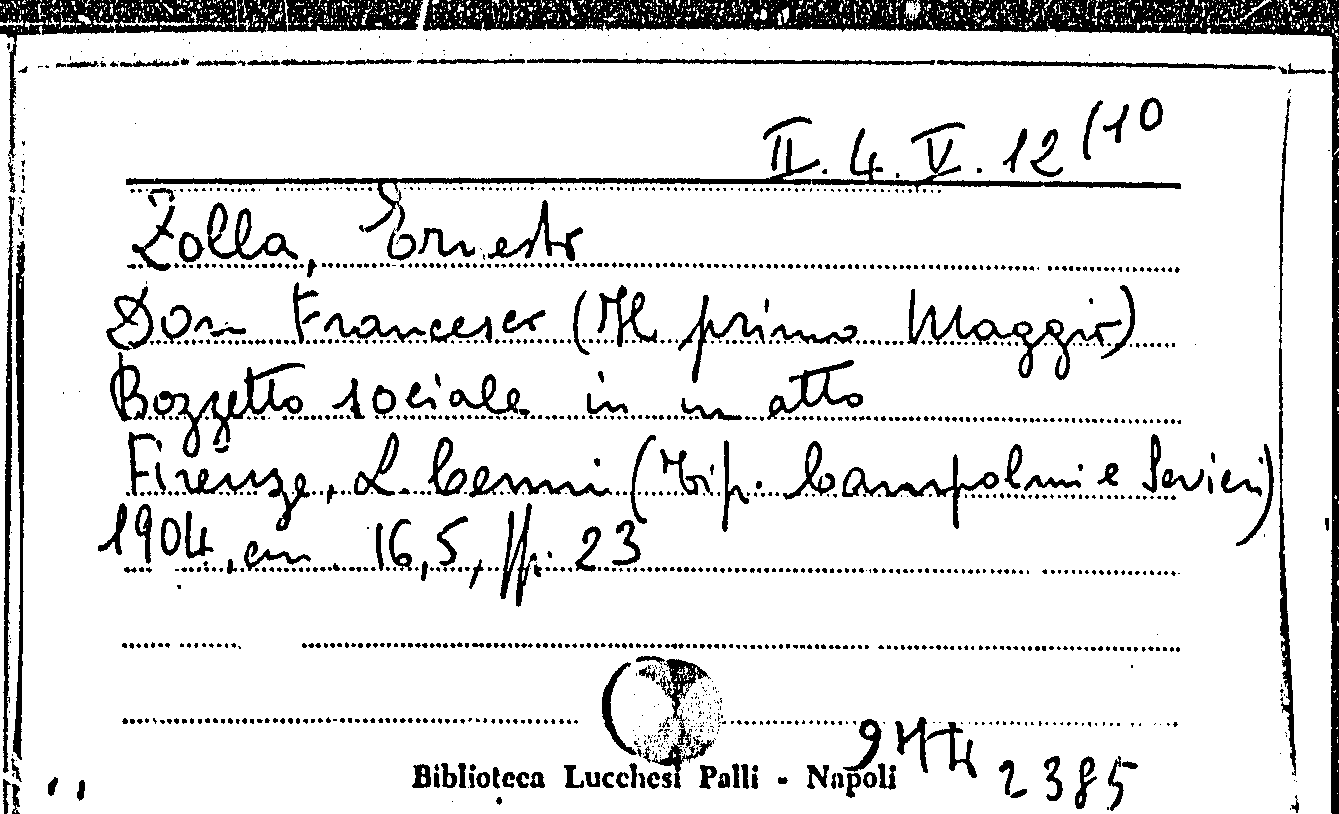 II. 4. V. 12 (10
Zolla, Ernesto
Don Francesco (Il primo Maggio)
Bozzetto sociale in un atto
Firenze, L. Cenni (Tip. Campolmi e Sevieri)
1904, cm. 16,5, pp. 23
Biblioteca Lucchesi Palli - Napoli
2385